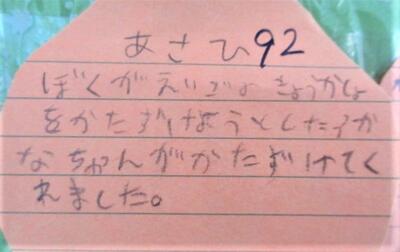 あさひ92
ぼくがえいごのきょうかしょ
をかたずけようとしたらか
なちゃんがかたずけてく
れました。